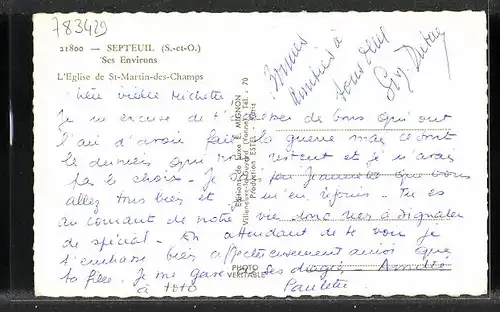 783429
21800 — SEPTEUIL (S.-et-O.)
Ses Environs
L'Eglise de St-Martin-des-Champs
Bonnes
amitiés à
tous deux
Guy
Michette
Je m'excuse de t'adresser de bons qui ont
l'air d'avoir fait la guerre mais ce sont
les derniers qui nous restent et je n'avais
pas le choix. Je sais par Jeannette que vous
allez tous bien et m'en réjouis. Tu es
au courant de notre vie donc rien à signaler
de spécial. En attendant de te voir je
t'embrasse bien affectueusement ainsi que
ta fille. Je me gave des dragées. Amitié
à toto Paulette
Editions de Luxe E. MIGNON
Villeneuve-la-Guyard (Yonne) Tél. : 70
Production ESTEL
PHOTO
VERITABLE